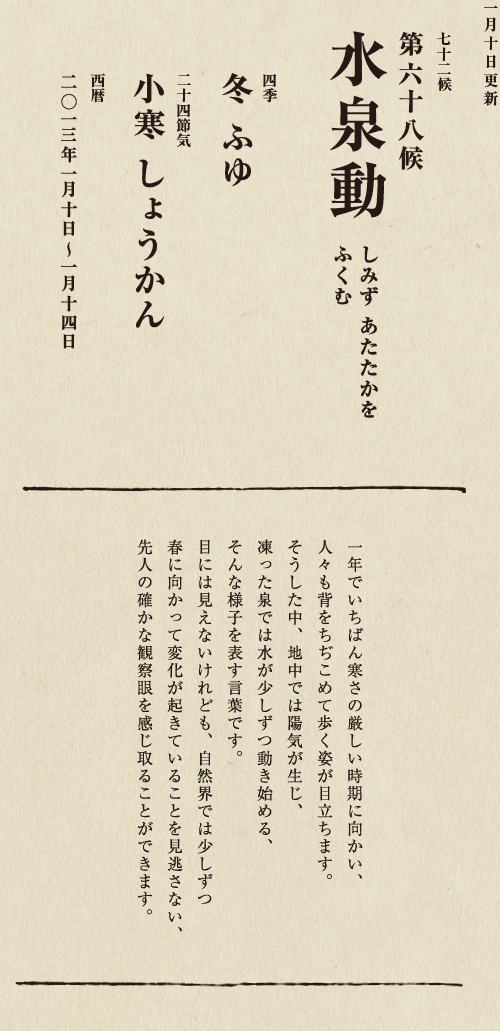 一月十日更新
七十二候
第六十八候
水泉動
しみず あたたかを
ふくむ
四季
冬 ふゆ
二十四節気
小寒 しょうかん
西暦
二〇一三年一月十日~一月十四日
一年でいちばん寒さの厳しい時期に向かい、
人々も背をちぢこめて歩く姿が目立ちます。
そうした中、地中では陽気が生じ、
凍った泉では水が少しずつ動き始める、
そんな様子を表す言葉です。
目には見えないけれども、自然界では少しずつ
春に向かって変化が起きていることを見逃さない、
先人の確かな観察眼を感じ取ることができます。